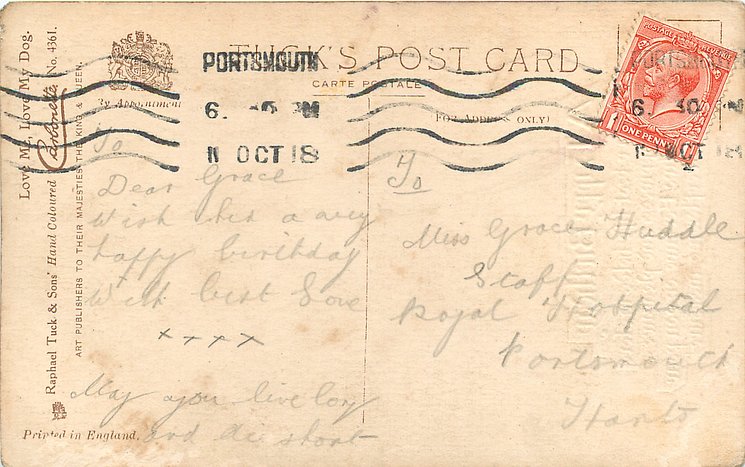 Love Me, Love My Dog.
Raphael Tuck & Sons' Hand Coloured Carbonette No. 4361.
ART PUBLISHERS TO THEIR MAJESTIES THE KING & QUEEN.
By Appointment
TUCK'S POST CARD
CARTE POSTALE
(FOR ADDRESS ONLY)
PORTSMOUTH
6. 30 PM
11 OCT 18
POSTAGE REVENUE
ONE PENNY
To
Dear Grace
Wish her a very
happy birthday
With best Love
x x x x
May you live long
and die short
To
Miss Grace Huddle
Staff
Royal Hospital
Portsmouth
Hants
Printed in England.